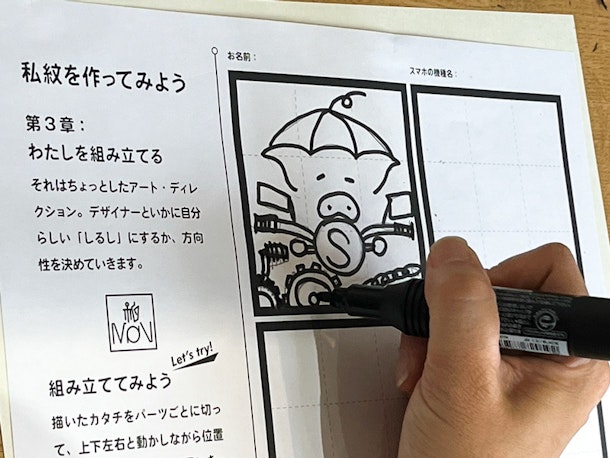 お名前：
スマホの機種名：
私紋を作ってみよう
第３章：
わたしを組み立てる
それはちょっとしたアート・ディレ
クション。デザイナーといかに自分
らしい「しるし」にするか、方向
性を決めていきます。
MON
Let's try!
組み立ててみよう
描いたカタチをパーツごとに切っ
て、上下左右と動かしながら位置
S
e